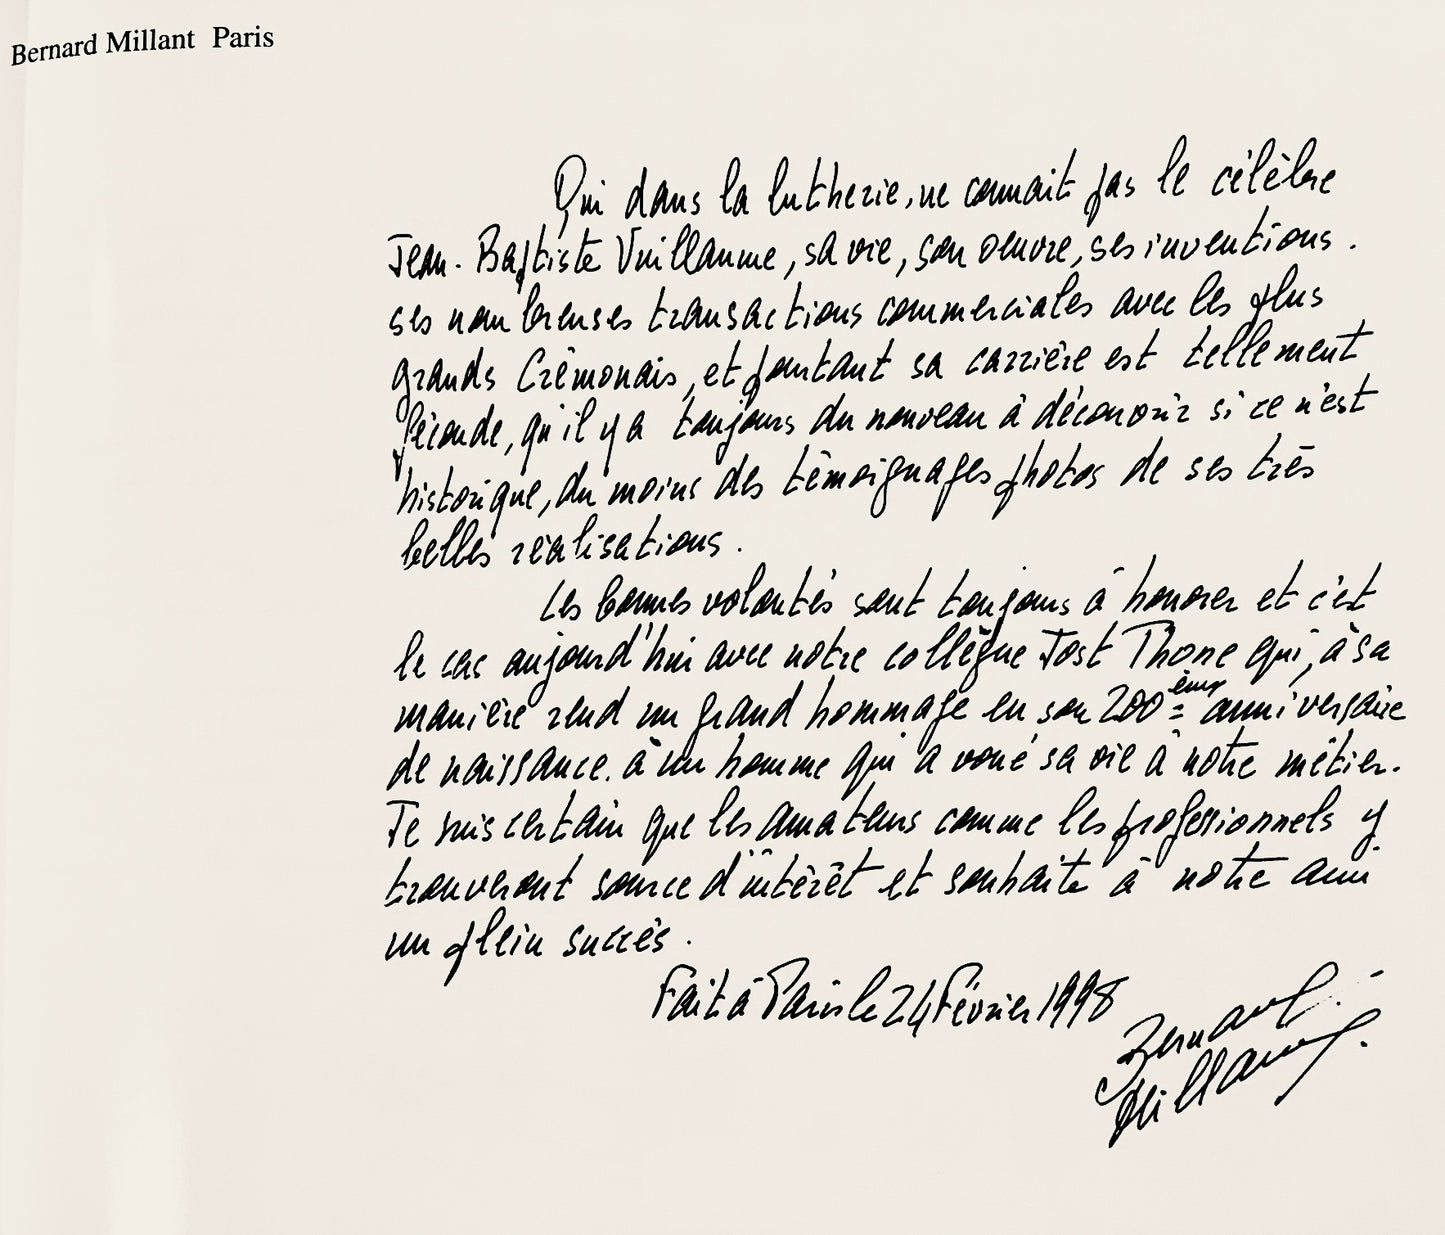 Bernard Millant Paris
Qui dans la lutherie, ne connait pas le célèbre
Jean-Baptiste Vuillaume, sa vie, son oeuvre, ses inventions.
ses nombreuses transactions commerciales avec les plus
grands Crémonais, et pourtant sa carrière est tellement
féconde, qu'il y a toujours du nouveau à découvrir si ce n'est
historique, du moins des témoignages photos de ses très
belles réalisations.
Les bonnes volontés sont toujours à honorer et c'est
le cas aujourd'hui avec notre collègue Jost Thone qui, à sa
manière rend un grand hommage en son 200ème anniversaire
de naissance. à un homme qui a voué sa vie à notre métier.
Je suis certain que les amateurs comme les professionnels y
trouveront source d'intérêt et souhaite à notre ami
un plein succès.
Fait à Paris le 24 Février 1998
Bernard
Millant